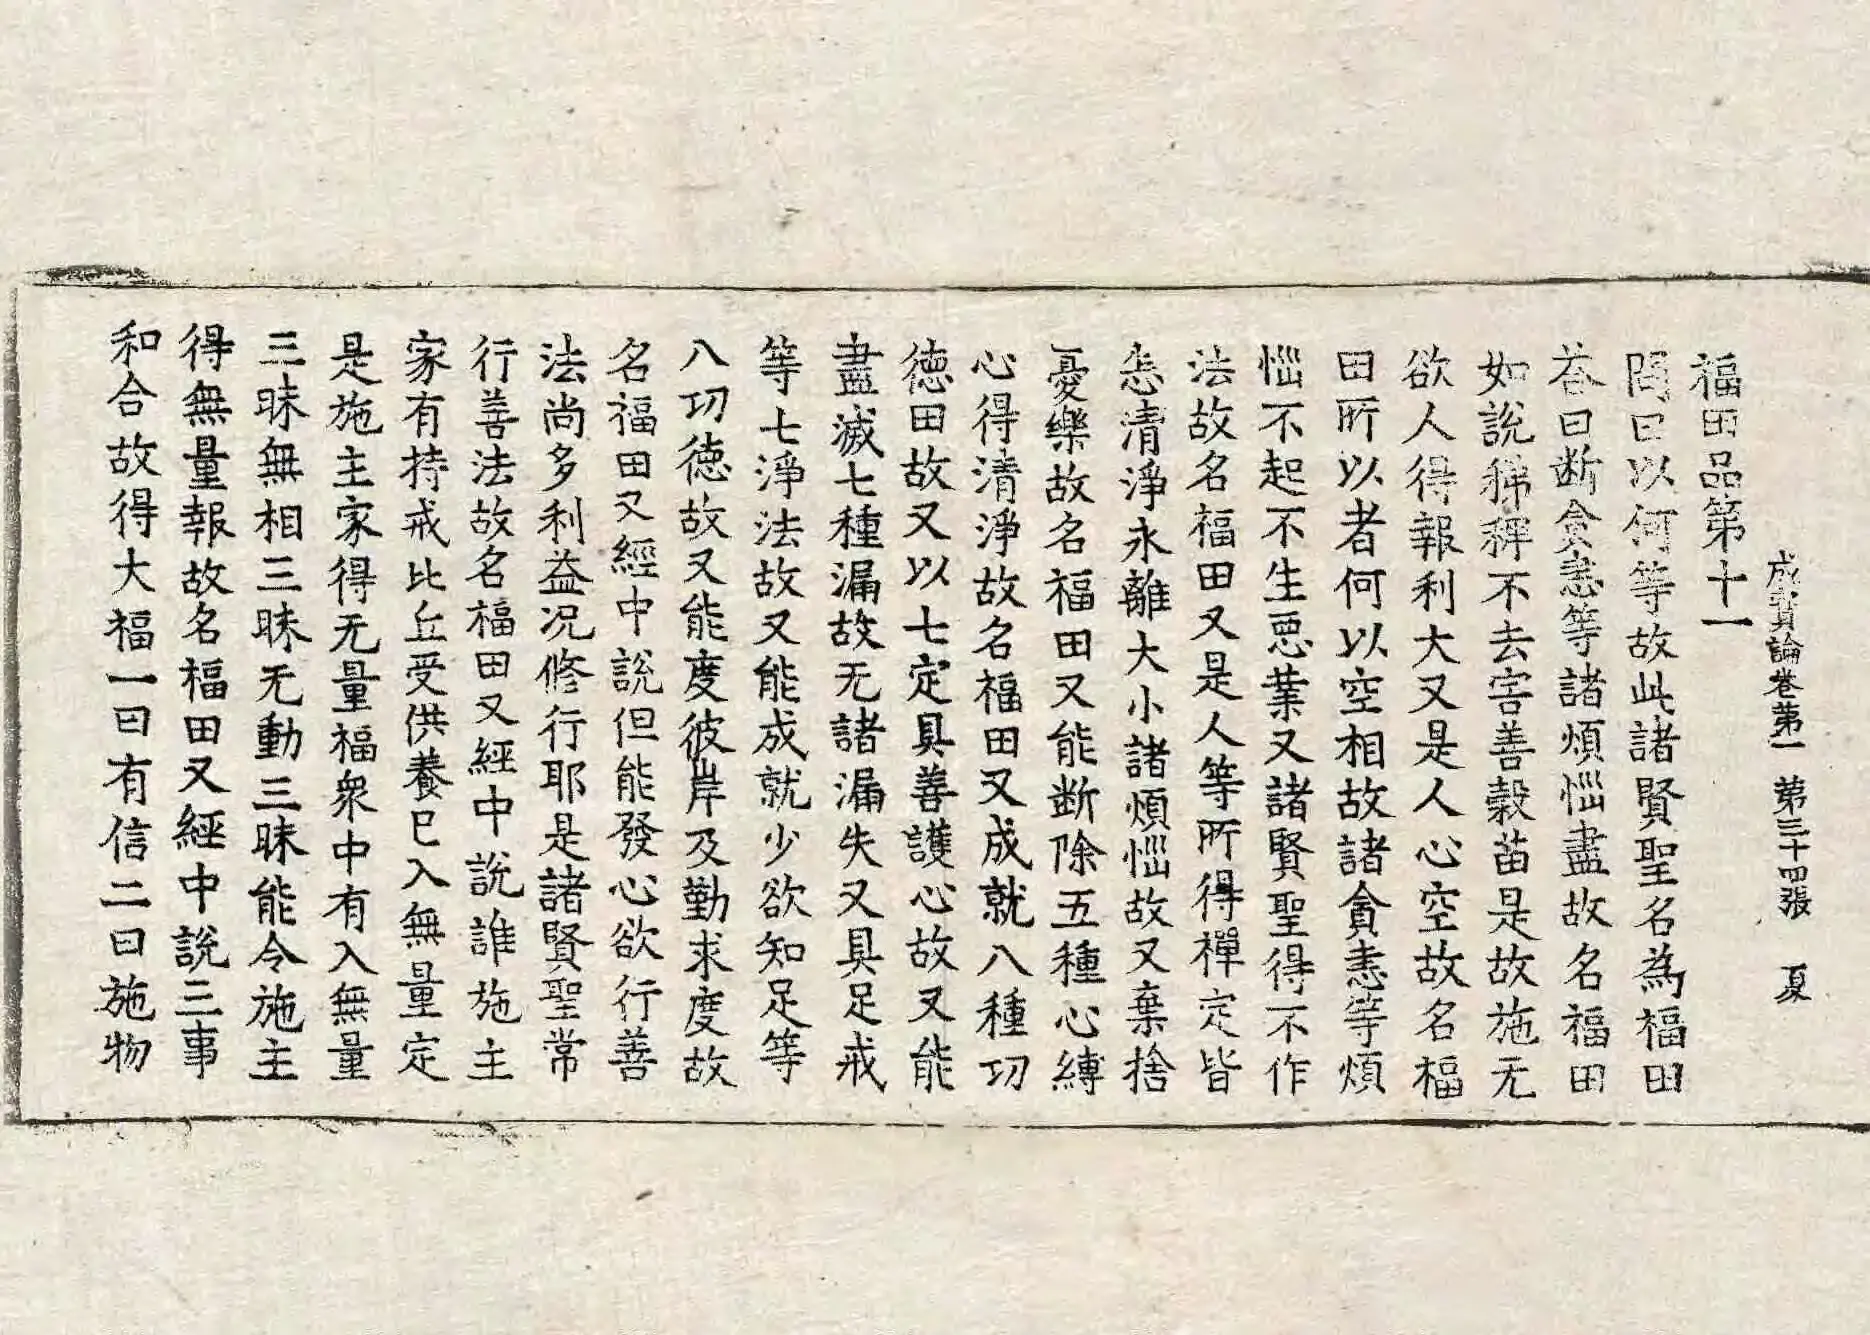 成實論卷第一　第三十四張　夏
福田品第十一
問曰以何等故此諸賢聖名為福田
荅曰断貪恚等諸煩惱盡故名福田
如說稊稗不去害善穀苗是故施无
欲人得報利大又是人心空故名福
田所以者何以空相故諸貪恚等煩
惱不起不生悪業又諸賢聖得不作
法故名福田又是人等所得禪定皆
悉清淨永離大小諸煩惱故又棄捨
憂樂故名福田又能断除五種心縛
心得清淨故名福田又成就八種功
徳田故又以七定具善護心故又能
盡滅七種漏故无諸漏失又具足戒
等七淨法故又能成就少欲知足等
八功徳故又能度彼岸及勤求度故
名福田又經中說但能發心欲行善
法尚多利益况修行耶是諸賢聖常
行善法故名福田又經中說誰施主
家有持戒比丘受供養已入無量定
是施主家得无量福衆中有入無量
三昧無相三昧无動三昧能令施主
得無量報故名福田又經中說三事
和合故得大福一曰有信二曰施物